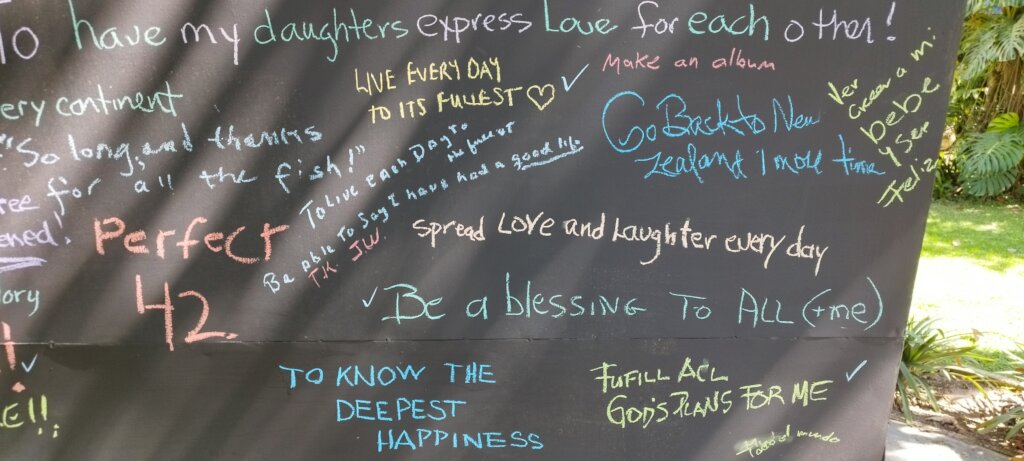 To have my daughters express Love for each other!
ery continent
"So long, and thanks
for all the fish!"
ree
ened!
ory
LE!!
LIVE EVERY DAY
TO ITS FULLEST
Make an album
Go Back to New
Zealand 1 more time
Ver
Crecer a mi
bebe
y ser
Feliz
To Live each Day to
its fullest
Be able to say I have had a good life
TK JW.
Perfect
42.
Spread Love and Laughter every day
Be a blessing To ALL (+me)
TO KNOW THE
DEEPEST
HAPPINESS
FUFILL ALL
GOD'S PLANS FOR ME